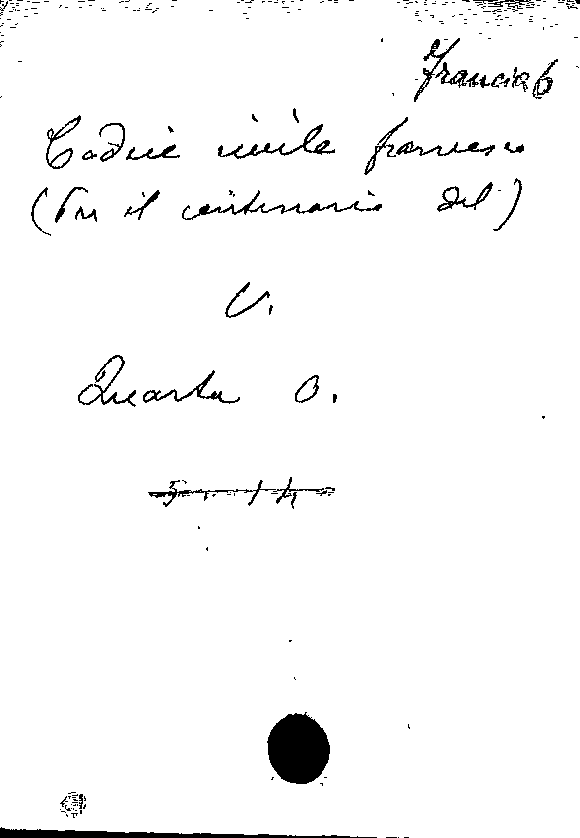 Francia 6
Codice civile francese
(Per il centenario del)
V.
Quarta O.
5. 14